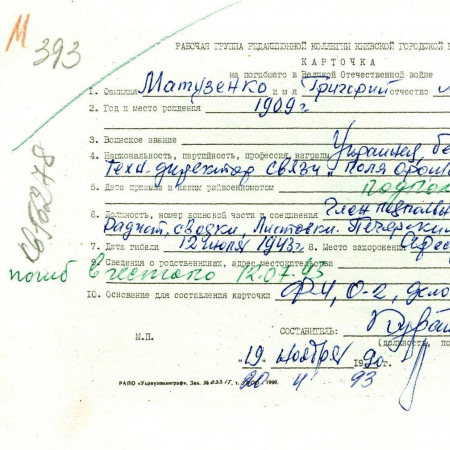 М 393
РАБОЧАЯ ГРУППА РЕДАКЦИОННОЙ КОЛЛЕГИИ КИЕВСКОЙ ГОРОДСКОЙ
КАРТОЧКА
на погибшего в Великой Отечественной войне
1. Фамилия Матузенко имя Григорий отчество
2. Год и место рождения 1909г.
3. Воинское звание
4. Национальность, партийность, профессия, награды Украинец, бе
Техн. директор связи "Поля орош
5. Дата призыва и каким райвоенкоматом подпол
6. Должность, номер воинской части и соединения Член подполь
сводки, листовки. Печерск
7. Дата гибели 12 июля 1943г. 8. Место захоронения
9. Сведения о родственниках, адрес местожительства
погиб 12.07.43
10. Основание для составления карточки Ф-4, О-2, дело
СОСТАВИТЕЛЬ:
М.П.
(должность, по
"19" ноября 1990.
20 4 93
РАПО «Укрвузполиграф». Зак. № 1990.